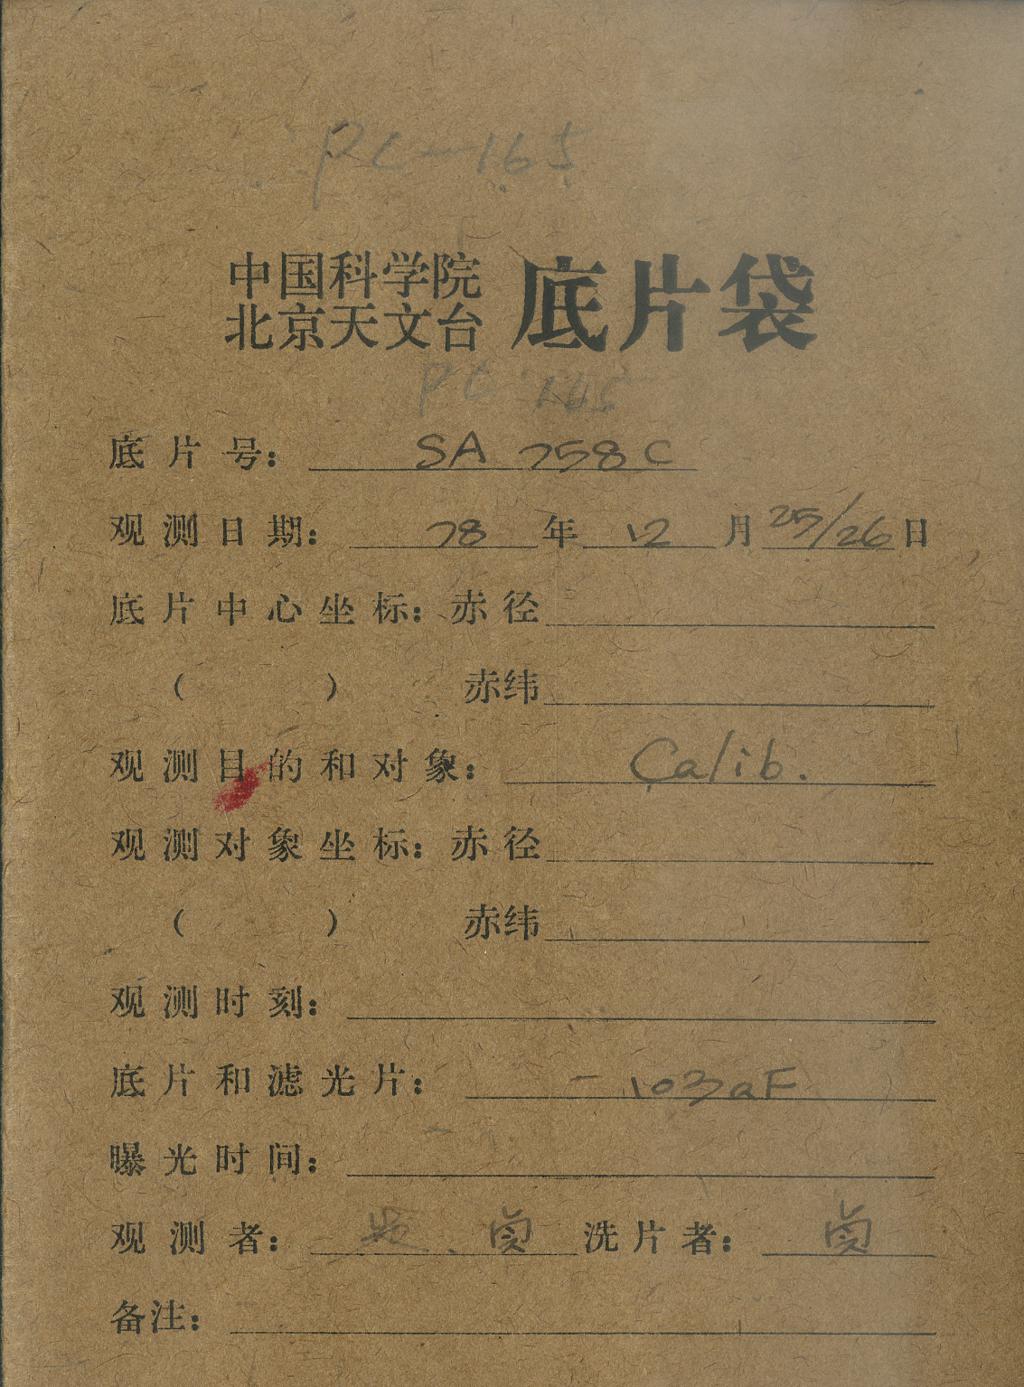 PC-165
中国科学院
北京天文台 底片袋
PC 165
底片号: SA 758C
观测日期: 78年12月25/26日
底片中心坐标: 赤径
( ) 赤纬
观测目的和对象: Calib.
观测对象坐标: 赤径
( ) 赤纬
观测时刻:
底片和滤光片: 103aF
曝光时间:
观测者: 洗片者:
备注: